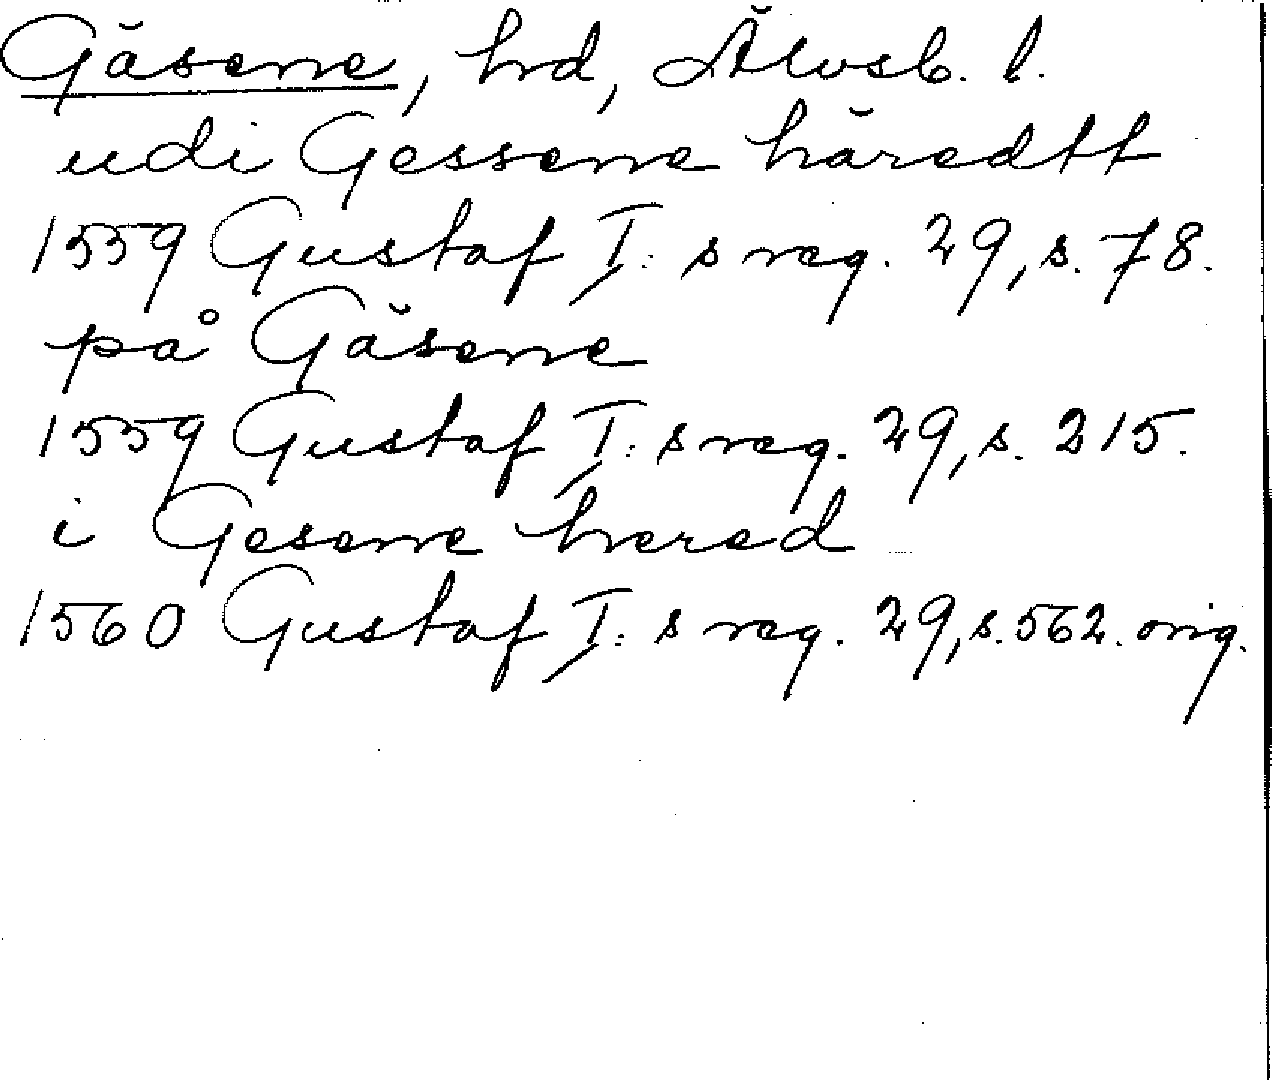 Gäsene, hrd, Älvsb. l.
udi Gessene häredtt
1559 Gustaf I:s reg. 29, s. 78.
på Gäsene
1559 Gustaf I:s reg. 29, s. 215.
i Gesene hered
1560 Gustaf I:s reg. 29, s. 562. orig.